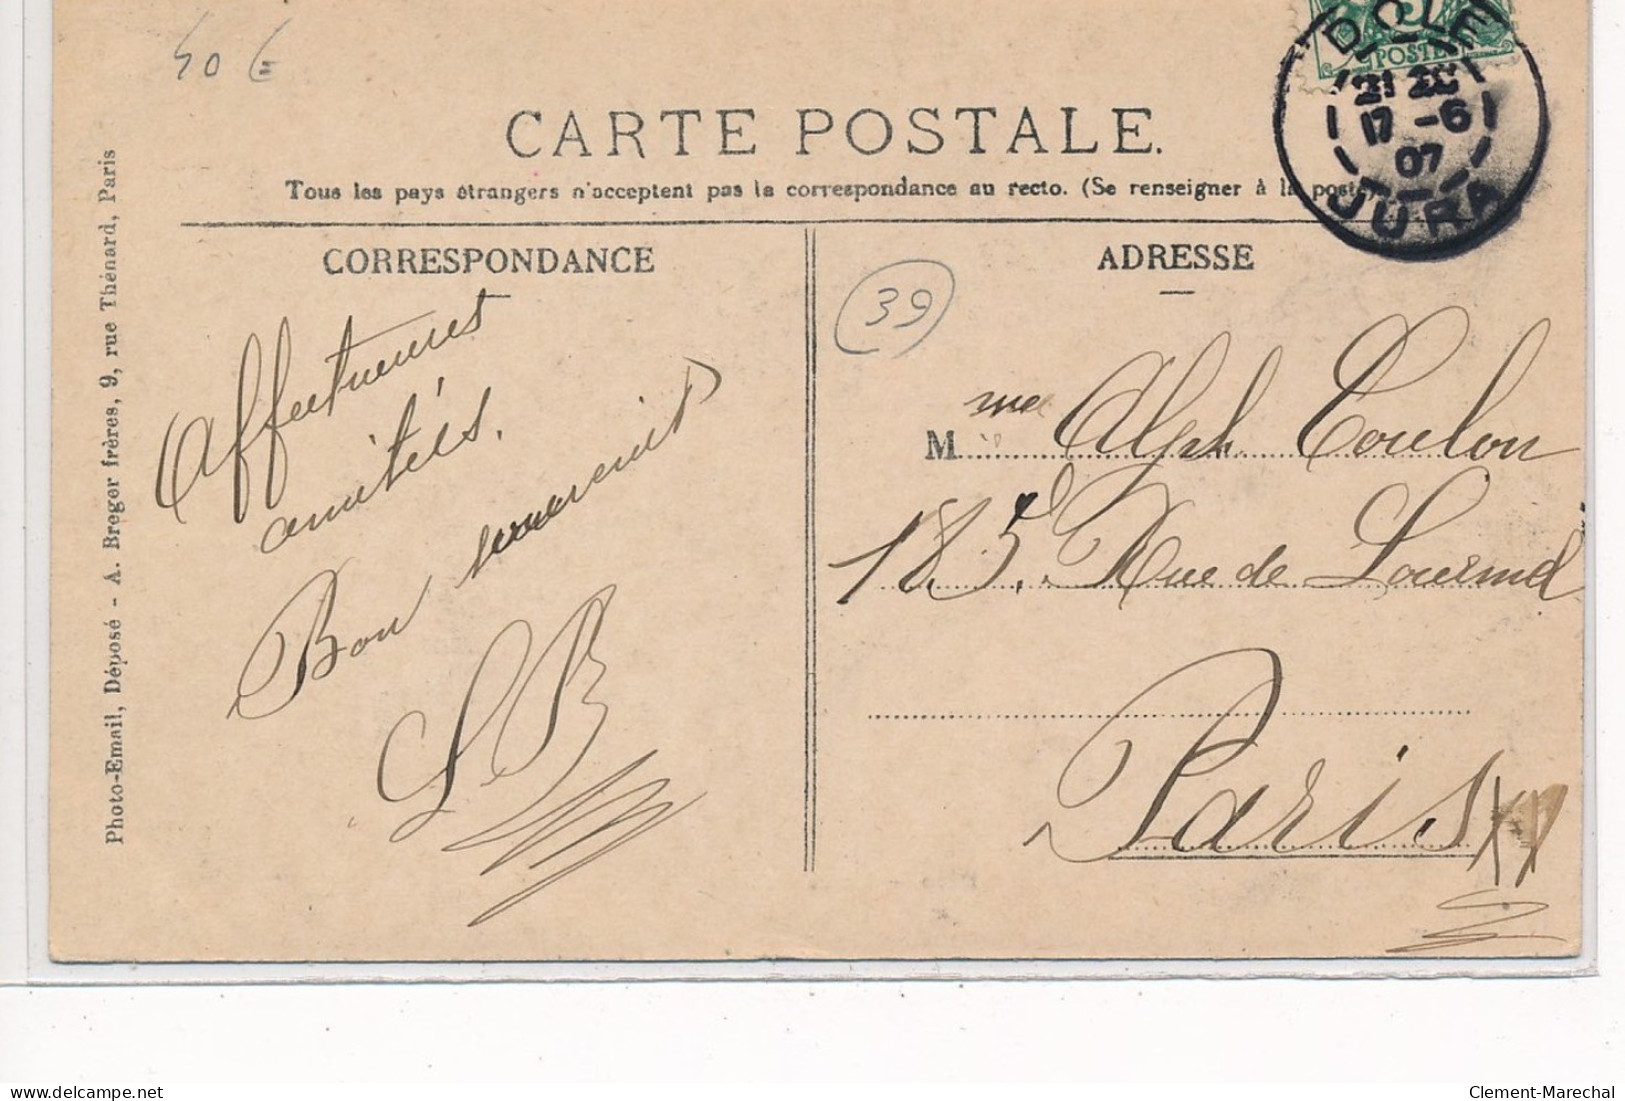 40 €
POSTES
DOLE
21 20
17 -6
07
JURA
CARTE POSTALE.
Tous les pays étrangers n'acceptent pas la correspondance au recto. (Se renseigner à la poste)
CORRESPONDANCE
Affectueuses
amitiés.
Bon souvenir
LB
Photo-Email, Déposé - A. Breger frères, 9, rue Thénard, Paris
39
ADRESSE
Mme Alph. Coulon
185, Rue de Lourmel
Paris XV
delcampe.net
Clement-Marechal